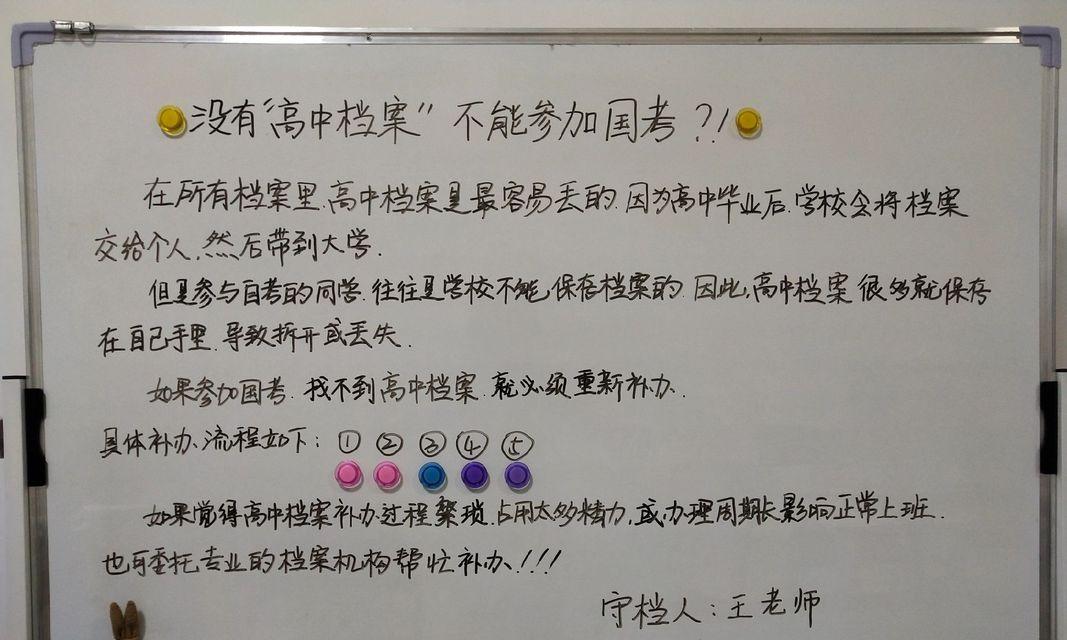 没有“高中档案”不能参加国考?!
在所有档案里.高中档案是最容易丢的.因为高中毕业后.学校会将档案
交给个人.然后带到大学.
但是参与自考的同学.往往是学校不能保存档案的.因此,高中档案很多就保存
在自己手里.导致拆开或丢失.
如果参加国考.找不到高中档案.就必须重新补办.
具体补办流程如下:①②③④⑤
如果觉得高中档案补办过程繁琐.占用太多精力.或办理周期长影响正常上班.
也可委托专业的档案机构帮忙补办!!!
守档人:王老师